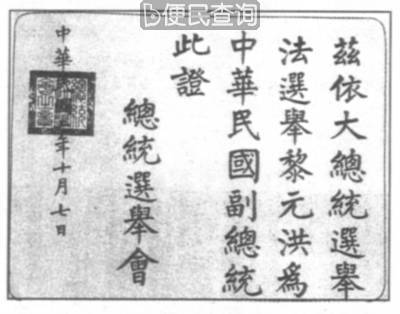 b便民查询
茲依大總統選舉
法選舉黎元洪爲
中華民國副總統
此證
總統選舉會
中華民國年十月七日